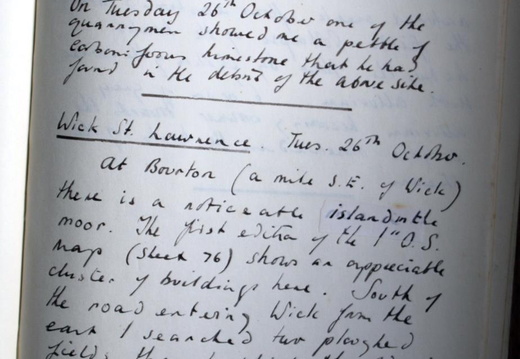 On Tuesday 26th October one of the
quarrymen showed me a pebble of
carboniferous limestone that he had
found in the debris of the above site.
Wick St. Lawrence. Tues. 26th October.
At Bourton (a mile S.E. of Wick)
there is a noticeable island in the
moor. The first edition of the 1" O.S.
map (sheet 76) shows an appreciable
cluster of buildings here. South of
the road entering Wick from the
east I searched two ploughed
fields